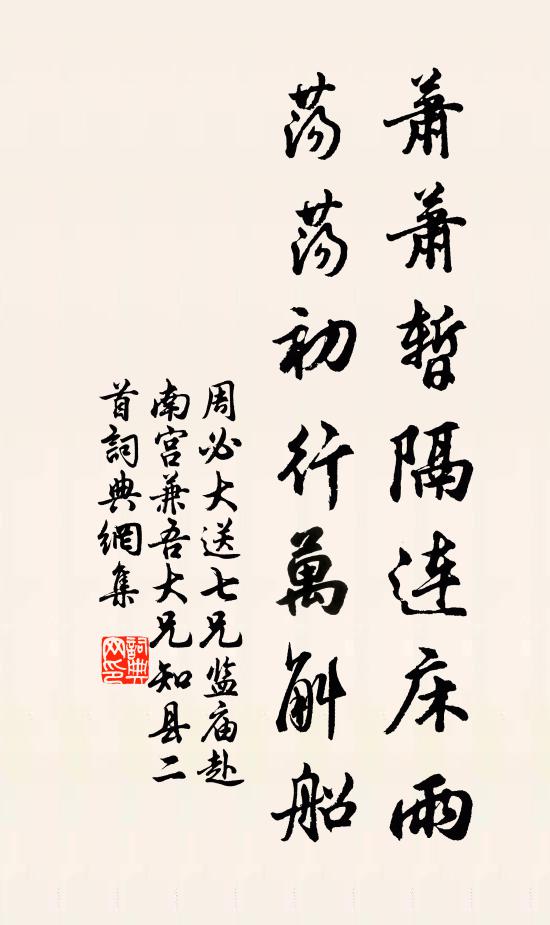 蕭蕭暫隔連床雨
蕩蕩初行萬斛船
周必大送七兄监庙赴
南宫兼吾大兄知县二
首詞典網集
詞典
网印